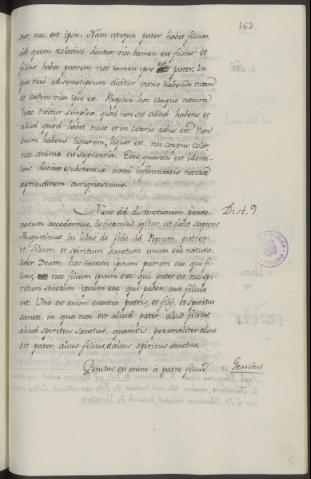 363
tur, nec est ipsa. Nam utique pater habet filium
ad quem relative dicitur, nec tamen est filius: et
filius habet patrem, nec tamen ipse est pater. In
quo vero ad semetipsum dicitur virus habendo vitam
et eadem vita ipse est. Propter hoc itaque natura
haec dicitur simplex, quod non sit aliud habens, et
aliud quod habet sicut in ceteris rebus est. Non
enim habens liquorem, liquor est, nec corpus color
nec anima est sapientia. Ecce quanta est identitas
divinae substantiae
aptitudinem assignavimus.
Nunc ad distinctionem perso-
Dist. 9
narum accedamus, teneamus igitur, ut docet sapiens
Augustinus in libro de fide ad Petrum, patrem
et filium, et spiritum sanctum unum esse natura-
liter Deum, nec tamen ipsum patrem esse qui fi-
lius, nec filium ipsum esse qui pater est, nec spi-
ritum sanctum ipsum esse qui pater aut filius
est. Una est enim essentia patris, et filii, et spiritus
sancti, in qua non est aliud pater, aliud filius
aliud spiritus sanctus, quamvis personaliter alius
sit pater, alius filius, alius spiritus sanctus.
Genitus est enim a patre filius
Genitus